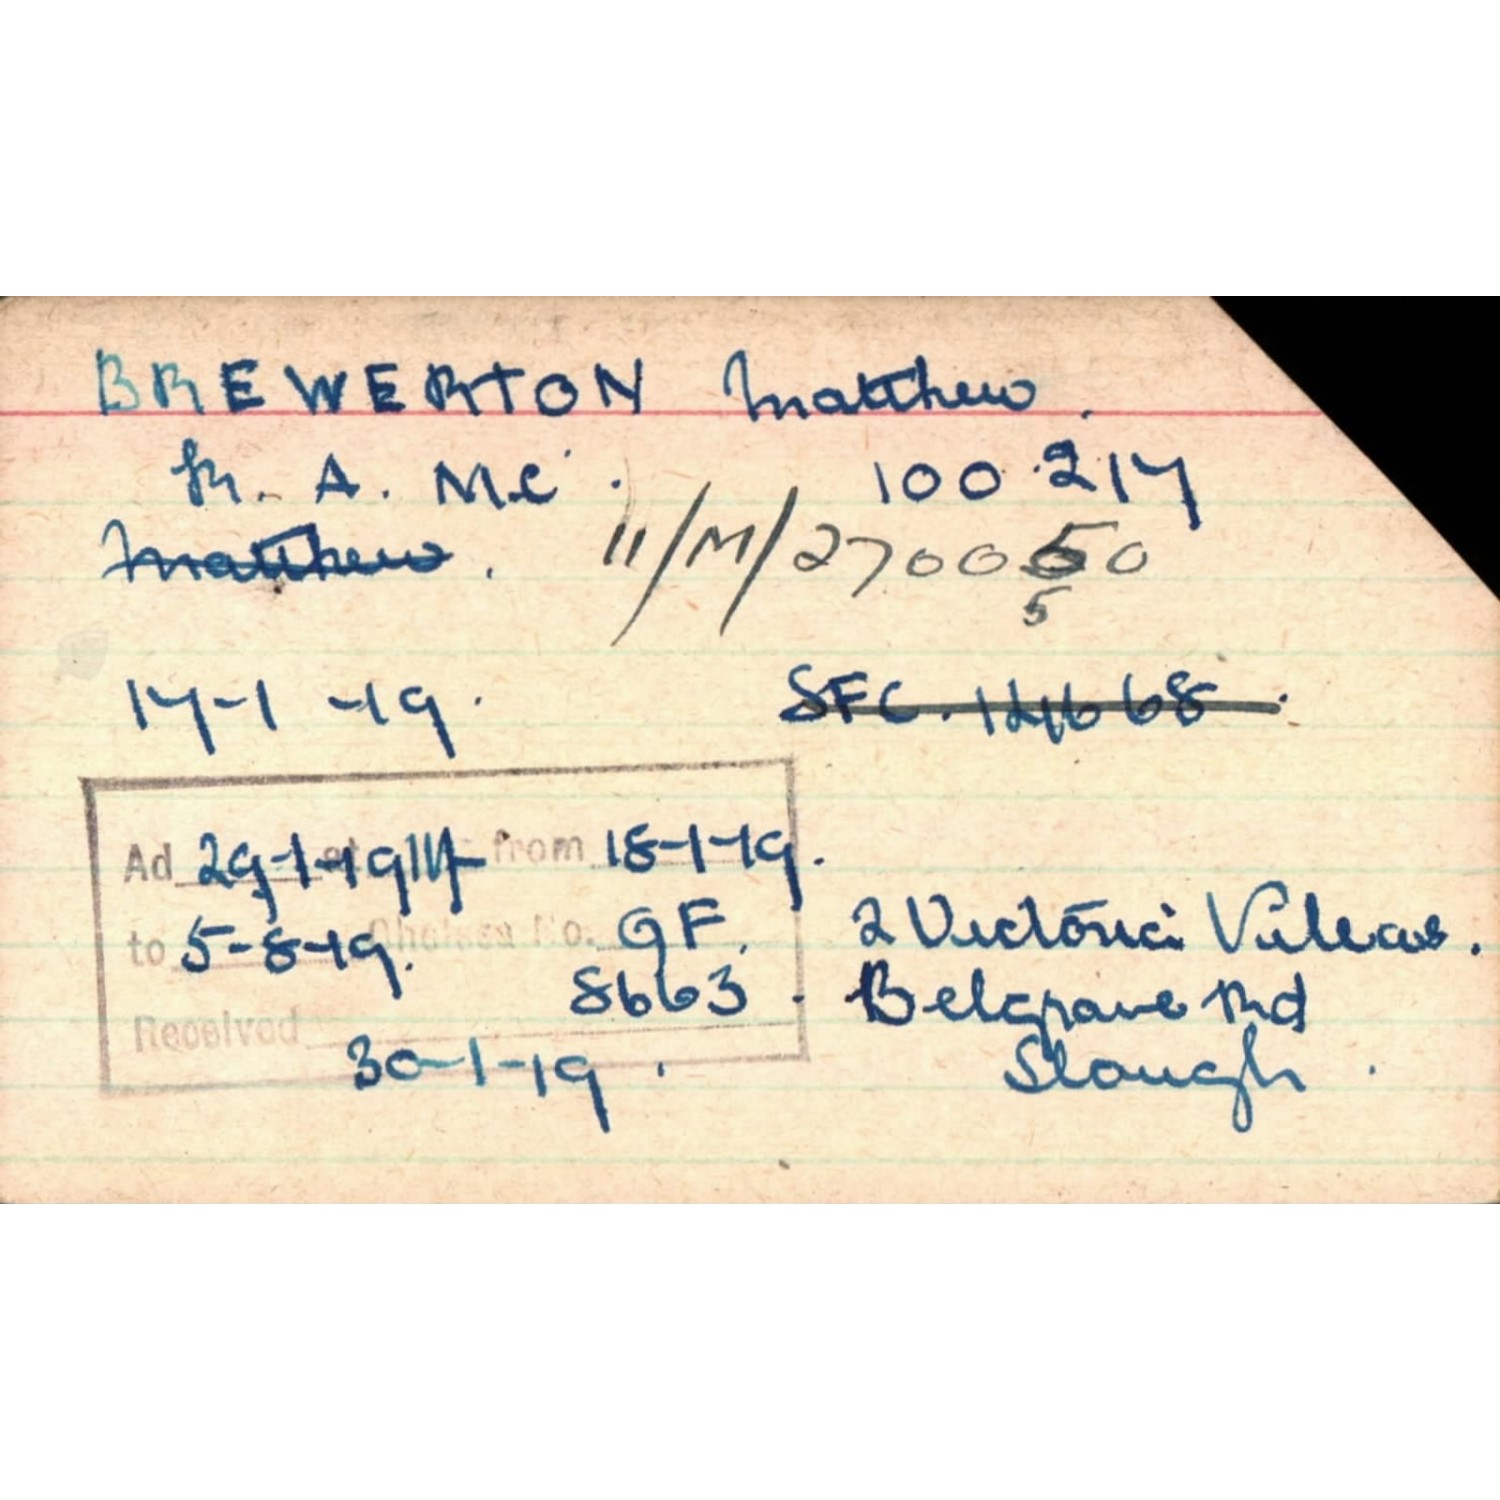 BREWERTON Matthew.
R. A. M.C. 100217
Matthew. 11/M/2700050
5
17-1-19. SFC. 124668.
Ad 29-1-19 from 18-1-19.
to 5-8-19. Chelsea No. 9F. 2 Victoria Villas.
8663. Belgrave Rd
Received 30-1-19. Slough.